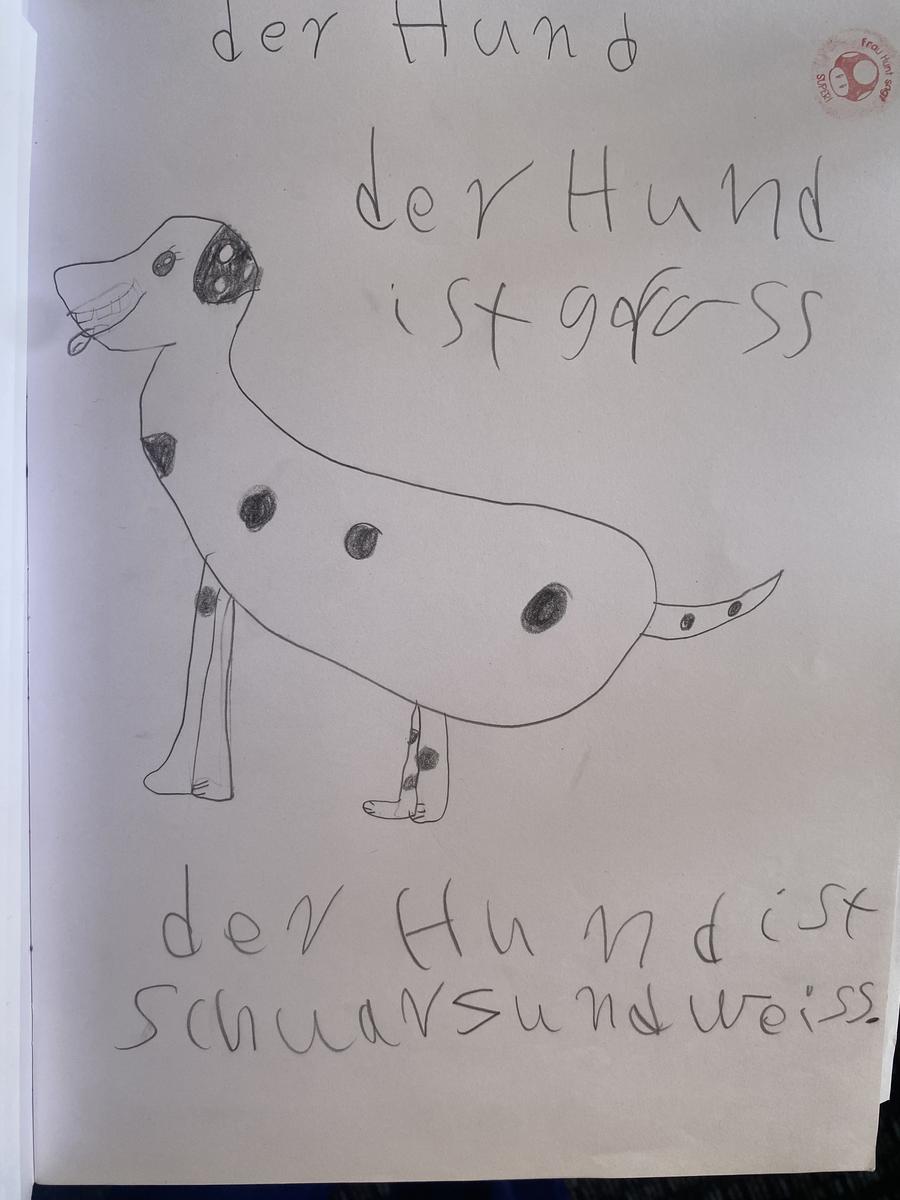 der Hund
Frau Hunt sagt
SUPER!
der Hund
ist gross
der Hund ist
schuars und weiss.